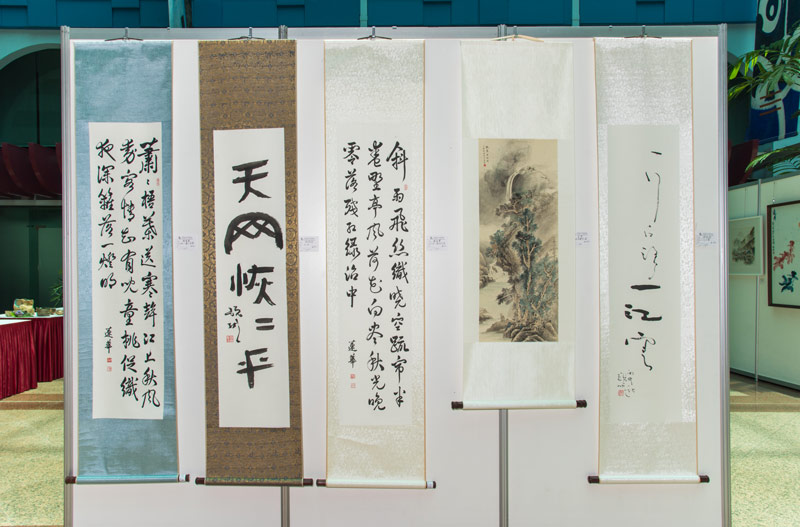 蕭〻梧葉送寒聲江上秋風
動客情知有兒童挑促織
夜深籬落一燈明
蓮華
天网恢〻平
斜雨飛絲織曉空疏帘半
卷野亭風荷花向盡秋光晚
零落殘紅綠沼中
蓮華
一行一江雲